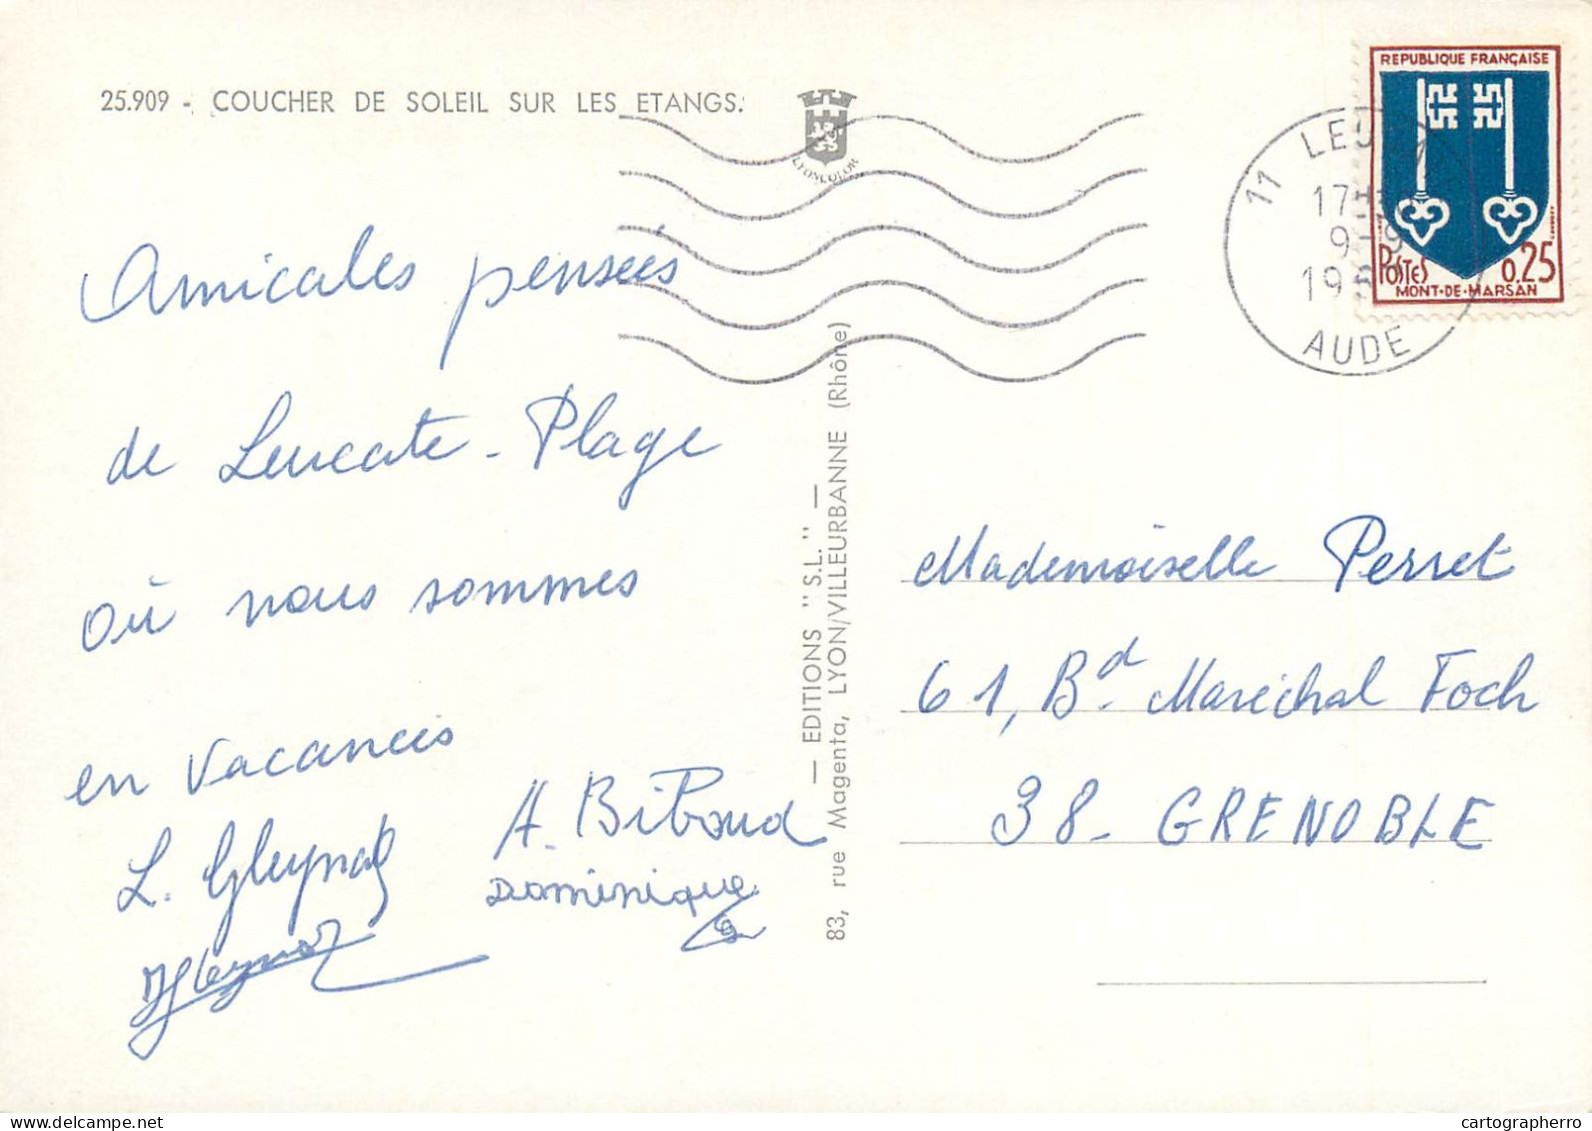 25.909 - COUCHER DE SOLEIL SUR LES ETANGS.
LYONCOLOR
REPUBLIQUE FRANÇAISE
POSTES 0.25
MONT-DE-MARSAN
11
17H
9-9
AUDE
Amicales pensées
de Leucate-Plage
où nous sommes
en vacances
L. Gleynat A. Biboud
Dominique
— EDITIONS "S.L." —
83, rue Magenta, LYON/VILLEURBANNE (Rhône)
Mademoiselle Perret
61, Bd Maréchal Foch
38- GRENOBLE
cartographerro